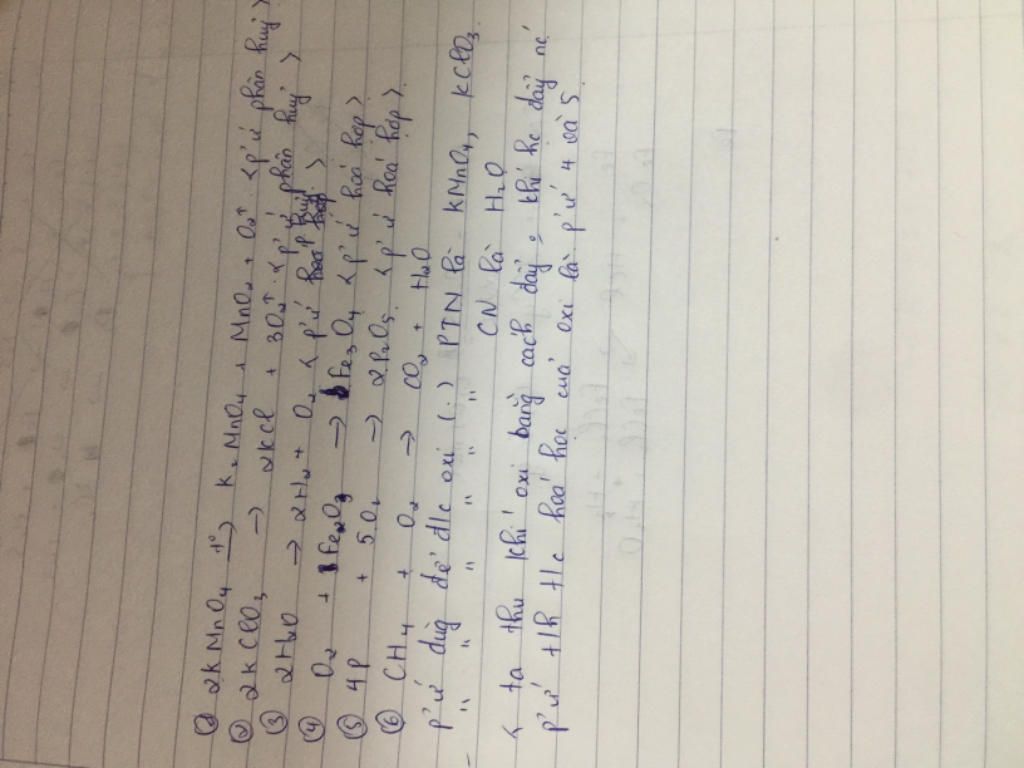 ① 2KMnO4 t°→ K2MnO4 + MnO2 + O2↑ <p'ứ phân huỷ>
② 2KClO3 → 2KCl + 3O2↑ <p'ứ phân huỷ>
③ 2H2O → 2H2 + O2 < p'ứ huỷ >
④ O2 + Fe2O3 → Fe3O4 < p'ứ hoá hợp >
⑤ 4P + 5O2 → 2P2O5 < p'ứ hoá hợp >
⑥ CH4 + O2 → CO2 + H2O
p'ứ dùg để đ/c oxi (.) PTN là KMnO4, KClO3
" " " " " " CN là H2O
< ta thu khí oxi bằng cách đẩy khí hc đẩy nc'
p'ứ t/h t/c hoá học của oxi là p'ứ 4 và 5